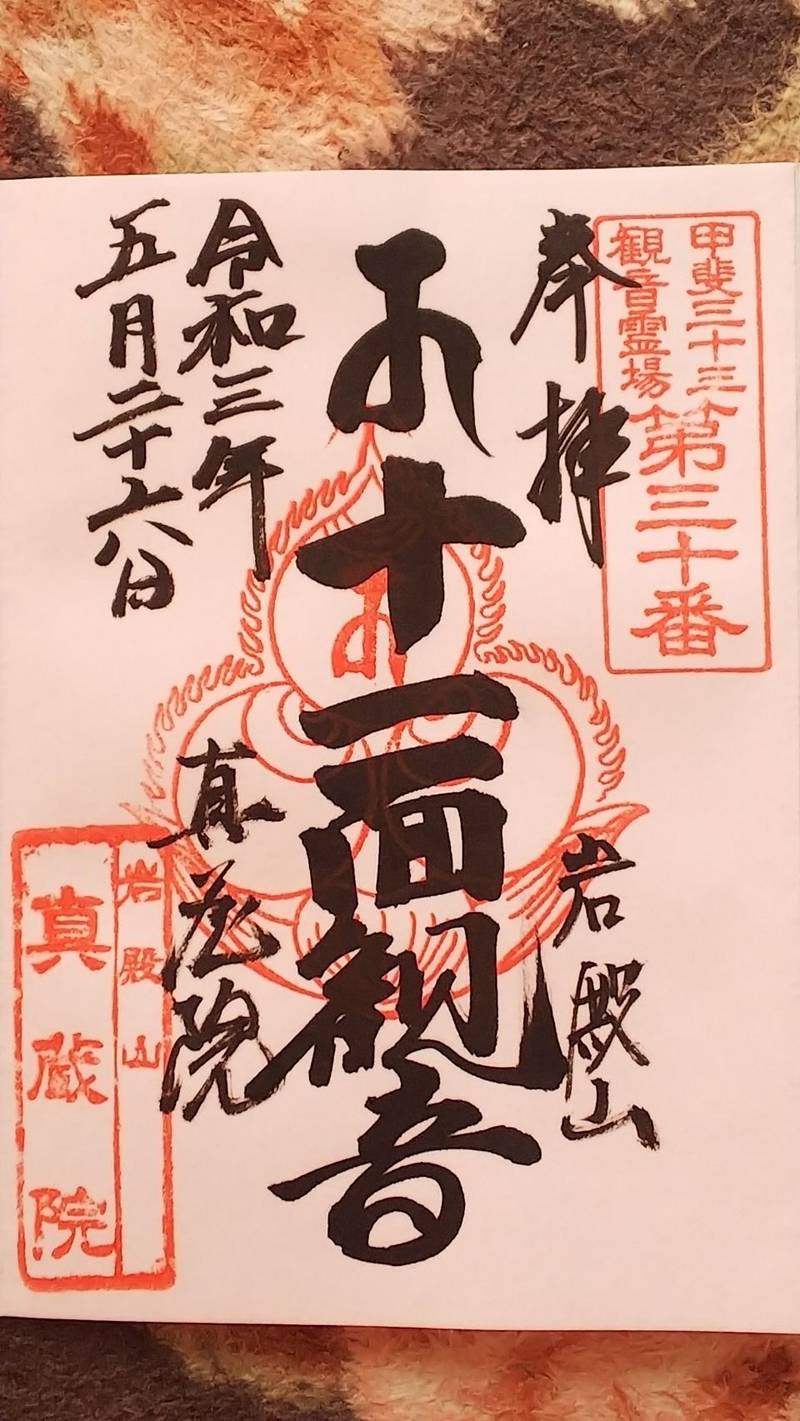 甲斐三十三
観音霊場
第三十番
奉拝
岩殿山
十一面観音
令和三年
五月二十六日
真蔵院
岩殿山
真蔵院